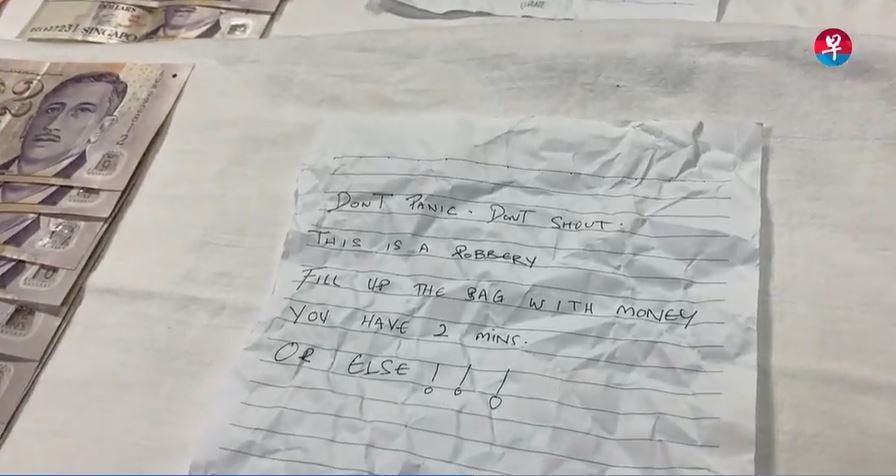 DOLLARS
SINGAPO
早
DONT PANIC. DONT SHOUT.
THIS IS A ROBBERY
FILL UP THE BAG WITH MONEY
YOU HAVE 2 MINS.
OR ELSE !!!